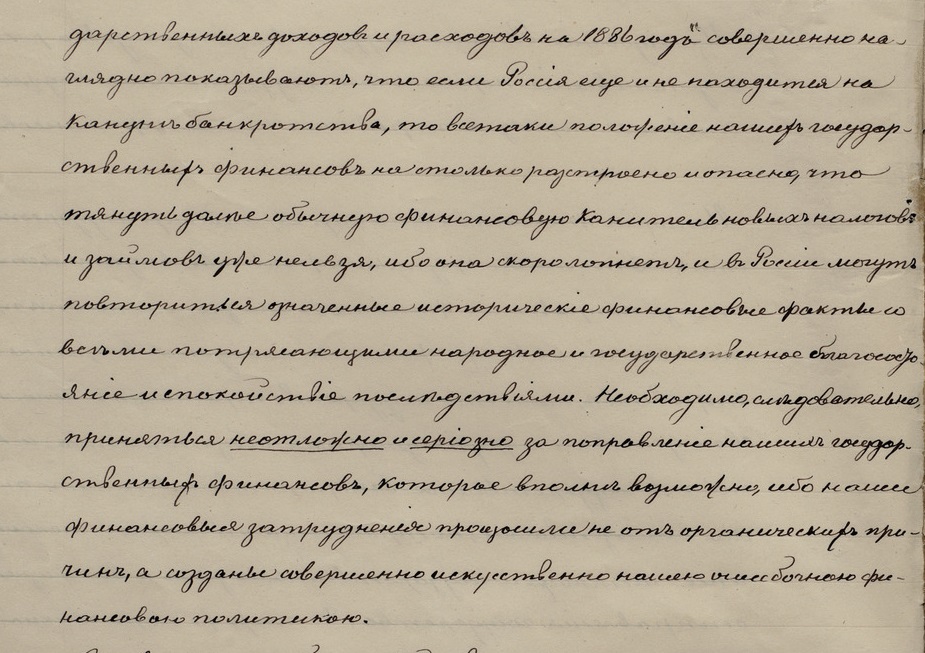 дарственныхъ доходовъ и расходовъ на 1886 годъ" совершенно на-
глядно показываютъ, что если Россія еще и не находится на
канунѣ банкротства, то всетаки положеніе нашихъ государ-
ственныхъ финансовъ на столько разстроено и опасно, что
тянуть далѣе обычную финансовую канитель новыхъ налоговъ
и займовъ уже нельзя, ибо она скоро лопнетъ, и въ Россіи могутъ
повториться означенные историческіе финансовые факты со
всѣми потрясающими народное и государственное благосостo-
яніе и спокойствіе послѣдствіями. Необходимо, слѣдовательно,
приняться неотложно и серіозно за поправленіе нашихъ государ-
ственныхъ финансовъ, которое вполнѣ возможно, ибо наши
финансовыя затрудненія произошли не отъ органическихъ при-
чинъ, а созданы совершенно искусственно нашею ошибочною фи-
нансовою политикою.